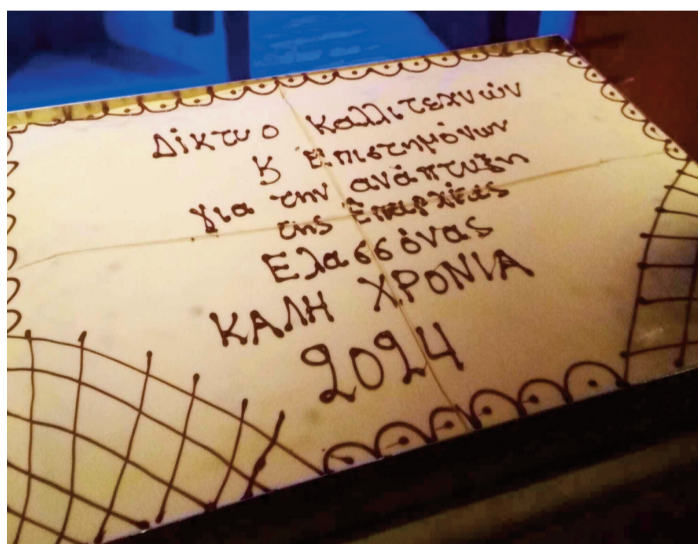 Δίκτυο Καλλιτεχνών
κ Επιστημόνων
για την ανάπτυξη
της Επαρχίας
Ελασσόνας
ΚΑΛΗ ΧΡΟΝΙΑ
2024